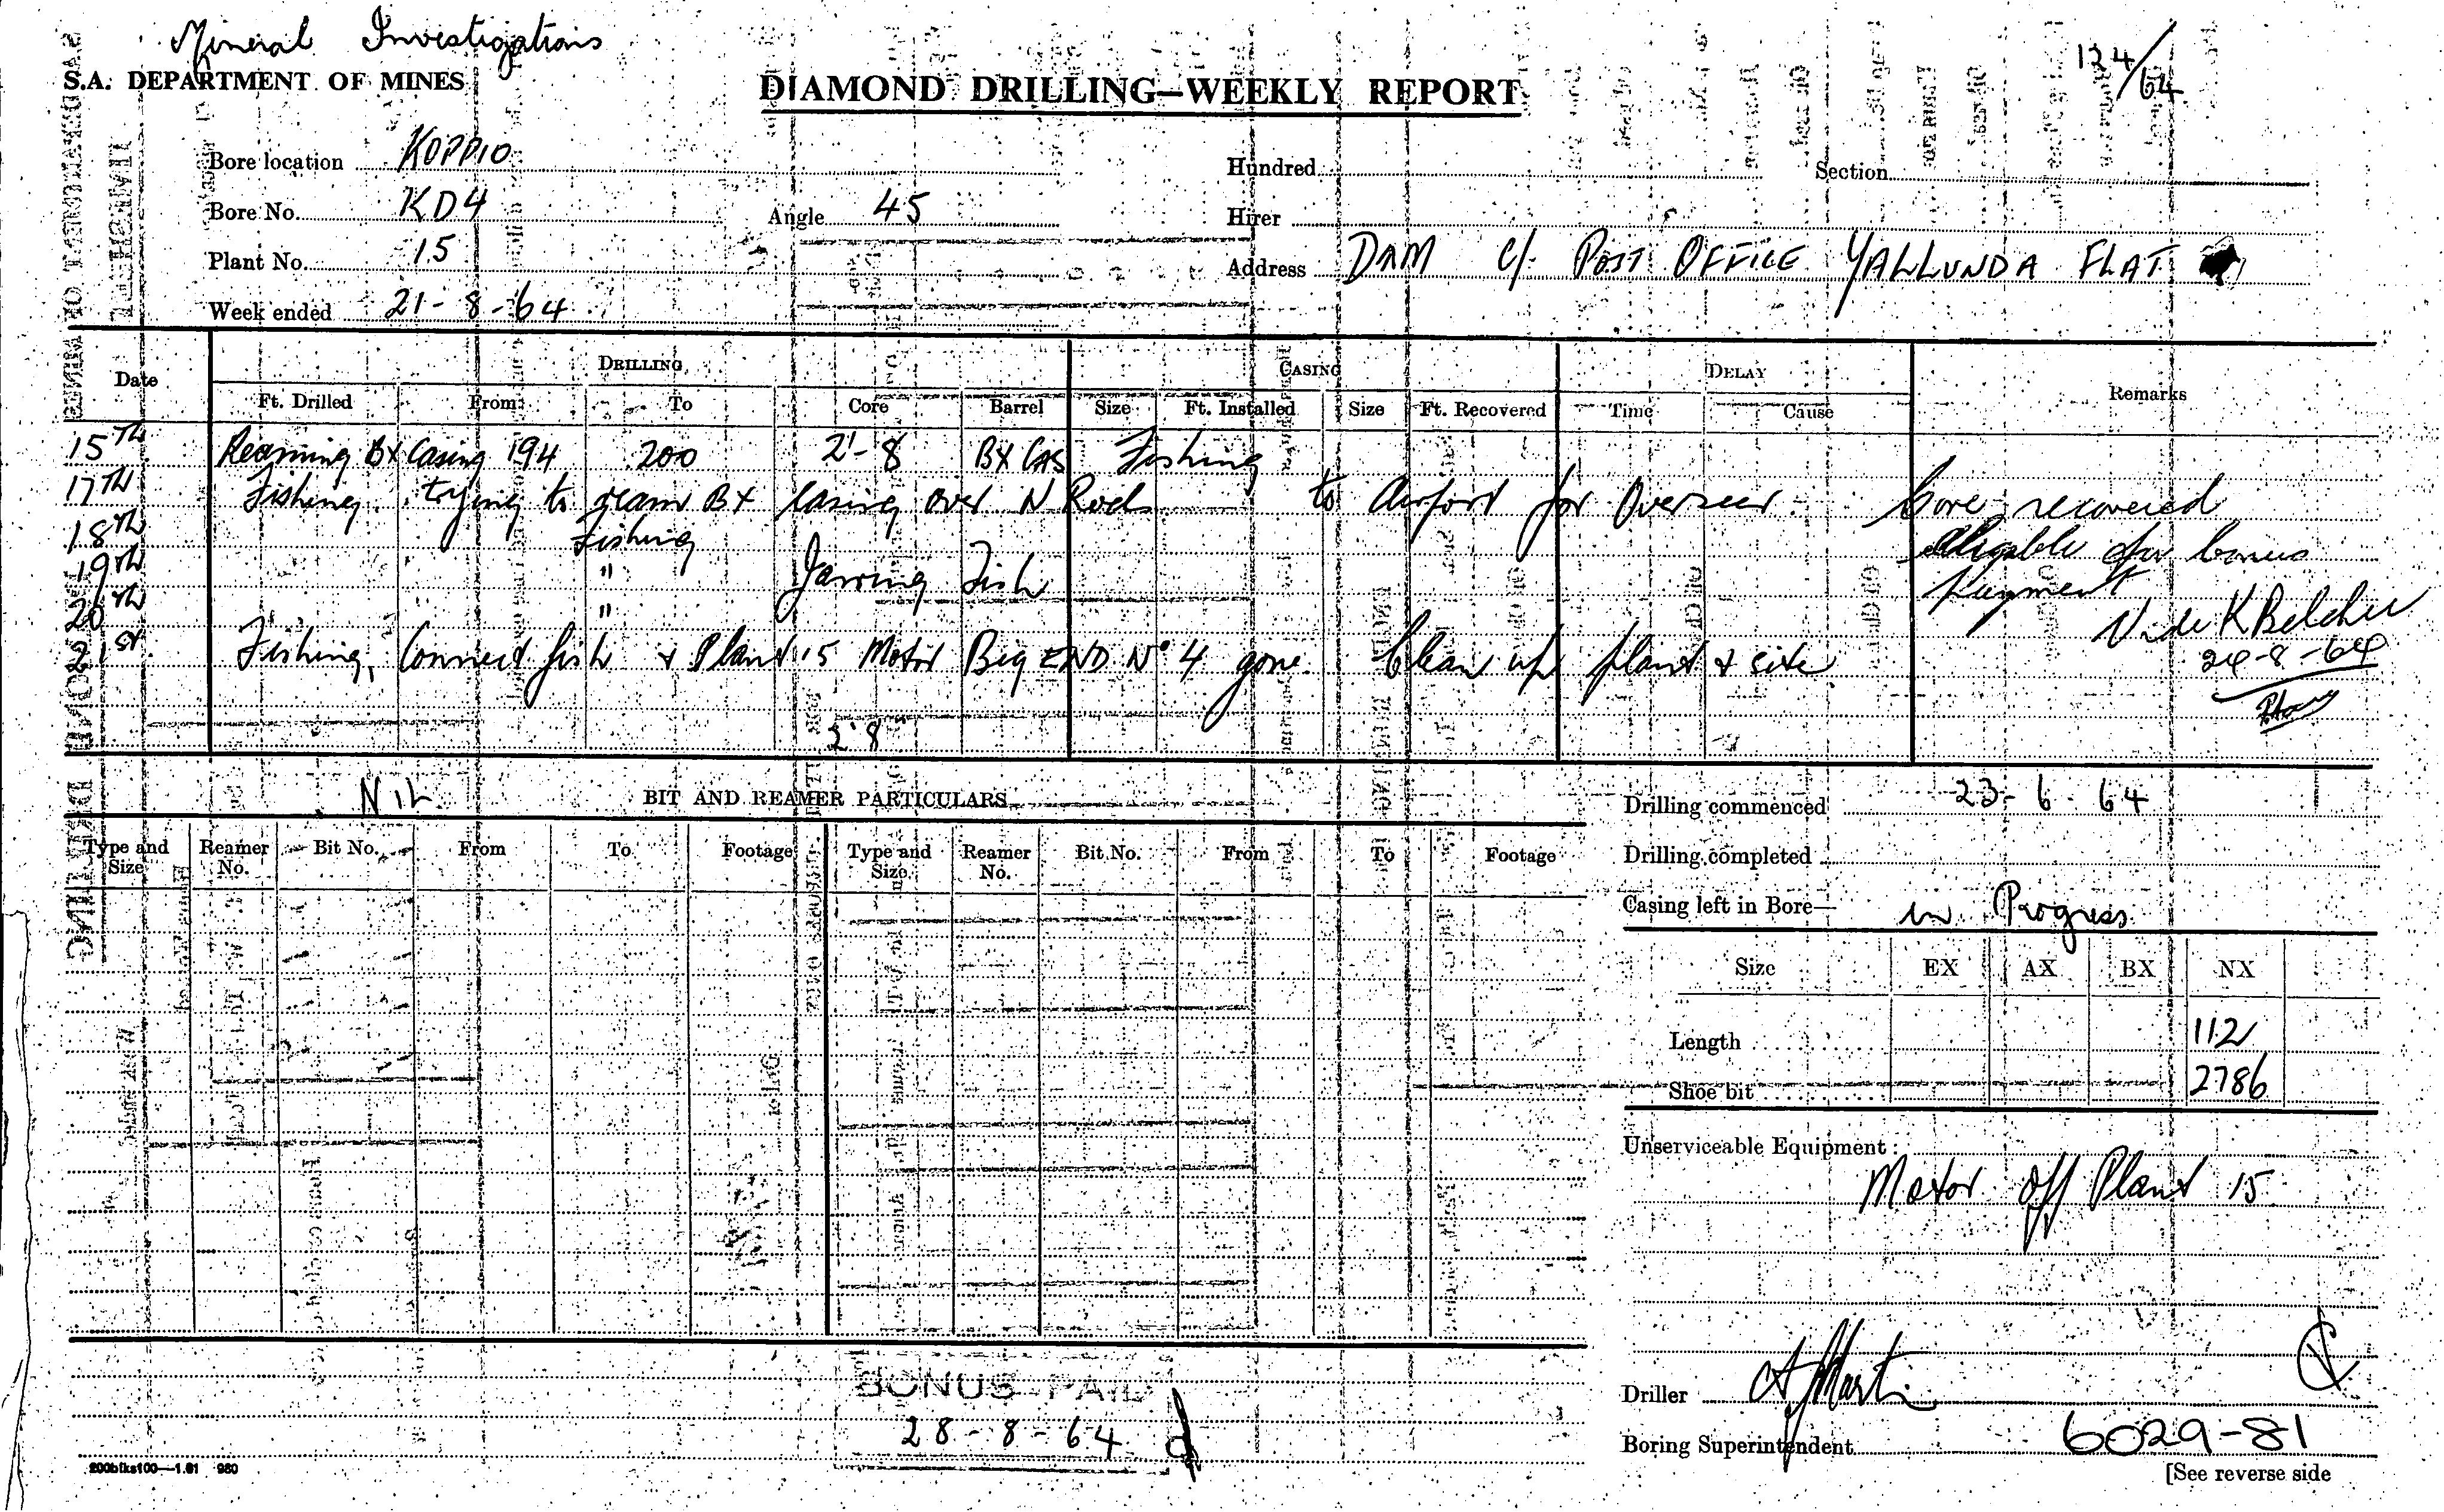 Mineral Investigations
124/64
S.A. DEPARTMENT OF MINES
DIAMOND DRILLING—WEEKLY REPORT
Bore location KOPPIO
Hundred
Section
Bore No. KD4
Angle 45
Hirer
Plant No. 15
Address DAM C/- POST OFFICE YALLUNDA FLAT
Week ended 21-8-64
Date
DRILLING
CASING
DELAY
Remarks
Ft. Drilled From To Core Barrel Size Ft. Installed Size Ft. Recovered Time Cause
15TH Reaming BX Casing 194 200 2'-8 BX CAS Fishing
17TH Fishing, trying to ream BX casing over N Rods to Airport for Overseer Core recovered
18TH Fishing eligable for bonus
19TH " Jarring Fish payment
20TH " Vide K Belcher
21st Fishing, Connect fish & Plant 15 Motor Big END No 4 gone Clean up plant & site 24-8-64
2'8"
NIL
BIT AND REAMER PARTICULARS
Drilling commenced 23-6-64
Type and Size Reamer No. Bit No. From To Footage Type and Size Reamer No. Bit No. From To Footage
Drilling completed
Casing left in Bore— in Progress
Size EX AX BX NX
Length 112
Shoe bit 2786
Unserviceable Equipment:
Motor off Plant 15
BONUS PAID
28-8-64
Driller
Boring Superintendent
6029-81
200bks100—1.61 980
[See reverse side